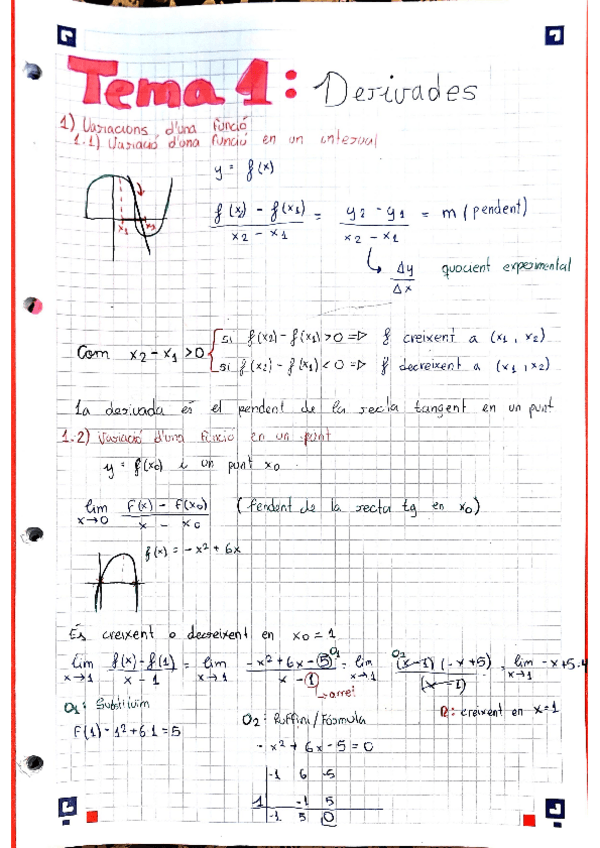 Tema 1: Derivades
1) Variacions d'una funció
1.1) Variació d'una funció en un interval
y = f(x)
f(x2) - f(x1) / x2 - x1 = y2 - y1 / x2 - x1 = m (pendent)
x1 x2
Δy / Δx quocient experimental
Com x2 - x1 > 0 { si f(x2) - f(x1) > 0 => f creixent a (x1, x2)
si f(x2) - f(x1) < 0 => f decreixent a (x1, x2)
La derivada és el pendent de la recta tangent en un punt
1.2) Variació d'una funció en un punt
y = f(x0) i un punt x0
lim x→0 F(x) - F(x0) / x - x0 (Pendent de la recta tg en x0)
f(x) = -x² + 6x
És creixent o decreixent en x0 = 1
lim x→1 f(x) - f(1) / x - 1 = lim x→1 -x² + 6x - 5 / x - 1 = lim x→1 (x-1)(-x+5) / (x-1) lim x→1 -x+5
01 02
→ arrel
01: Substituïm
02: Ruffini/Fórmula
R: creixent en x=1
F(1) - 1² + 6·1 = 5
- x² + 6x - 5 = 0
-1 6 -5
1 -1 5
-1 5 0